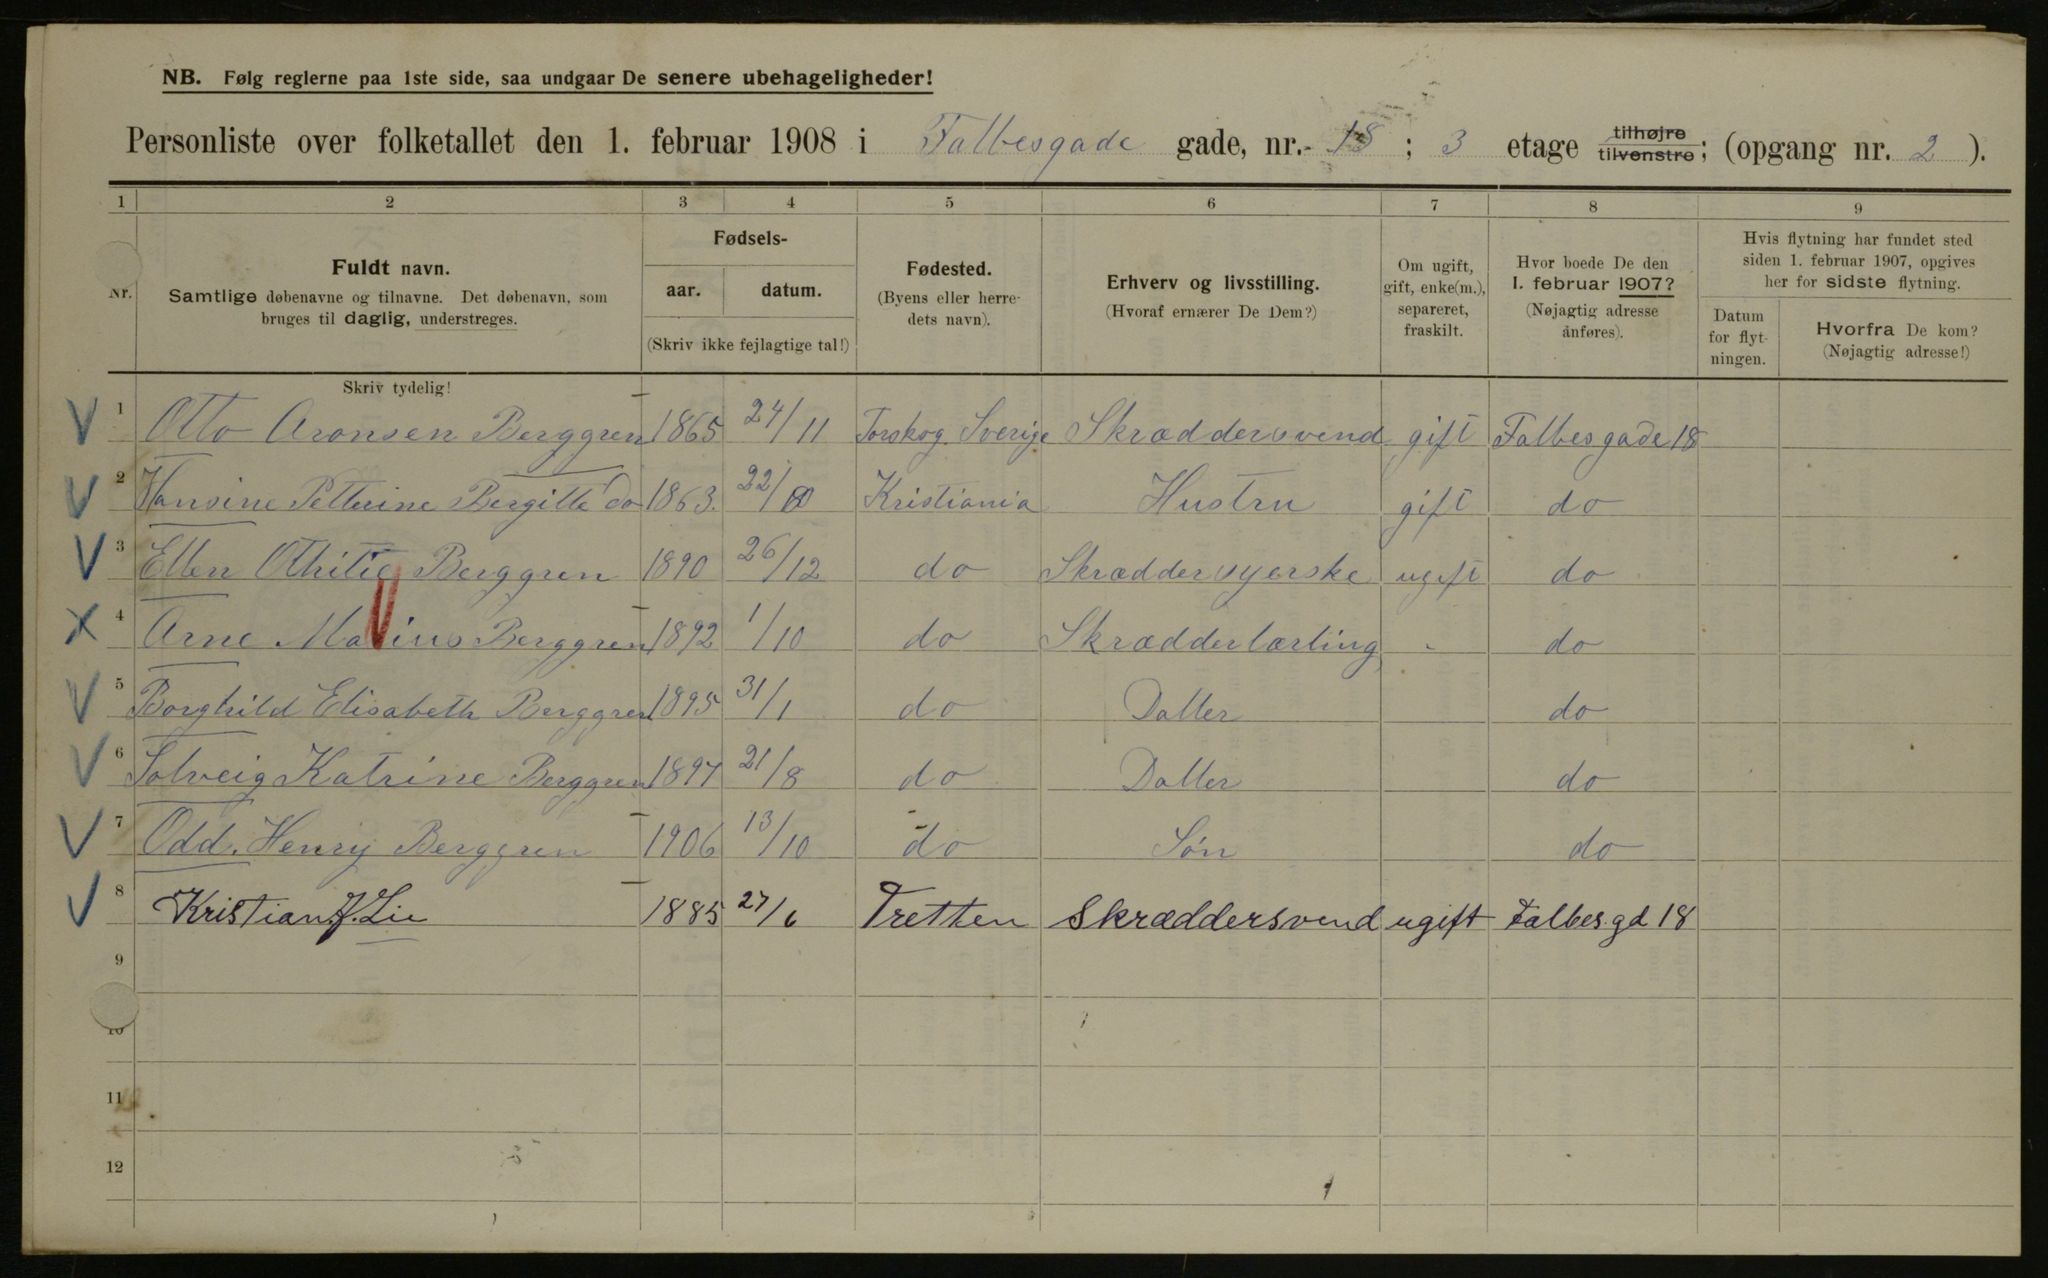 NB. Følg reglerne paa 1ste side, saa undgaar De senere ubehageligheder!
Personliste over folketallet den 1. februar 1908 i Falbesgade gade, nr. 18 ; 3 etage tilhøjre tilvenstre; (opgang nr. 2 ).
1 2 3 4 5 6 7 8 9
Nr.
Fuldt navn.
Samtlige døbenavne og tilnavne. Det døbenavn, som
bruges til daglig, understreges.
Skriv tydelig!
Fødsels-
aar. datum.
(Skriv ikke fejlagtige tal!)
Fødested.
(Byens eller herre-
dets navn).
Erhverv og livsstilling.
(Hvoraf ernærer De Dem?)
Om ugift,
gift, enke(m.),
separeret,
fraskilt.
Hvor boede De den
1. februar 1907?
(Nøjagtig adresse
anføres).
Hvis flytning har fundet sted
siden 1. februar 1907, opgives
her for sidste flytning.
Datum
for flyt-
ningen.
Hvorfra De kom?
(Nøjagtig adresse!)
1 Otto Aronsen Berggren 1865 24/11 Torskog Sverige Skræddersvend gift Falbesgade 18
2 Hansine Petterine Bergitte do 1863. 22/ Kristiania Hustru gift do
3 Ellen Othilie Berggren 1890 26/12 do Skræddersyerske ugift do
4 Arne Marius Berggren 1892 1/10 do Skrædderlærling - do
5 Borghild Elisabeth Berggren 1895 31/1 do Datter do
6 Solveig Katrine Berggren 1897 21/8 do Datter do
7 Odd. Henry Berggren 1906 13/10 do Søn do
8 Kristian J. Lie 1885 27/6 Tretten Skræddersvend ugift Falbes.gd 18
9
10
11
12